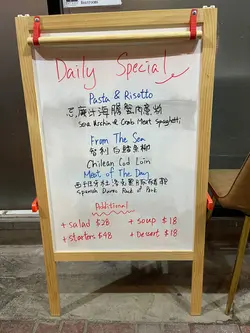 Daily Special
Pasta & Risotto
忌廉汁海膽蟹肉意粉
Sea Urchin & Crab Meat Spaghetti
From The Sea
智利白鱈魚柳
Chilean Cod Loin
Meat Of The Day
西班牙杜洛克黑豚豬
Spanish Duroc Rack of Pork
Additional
+ salad $28
+ soup $18
+ starters $48
+ Dessert $18